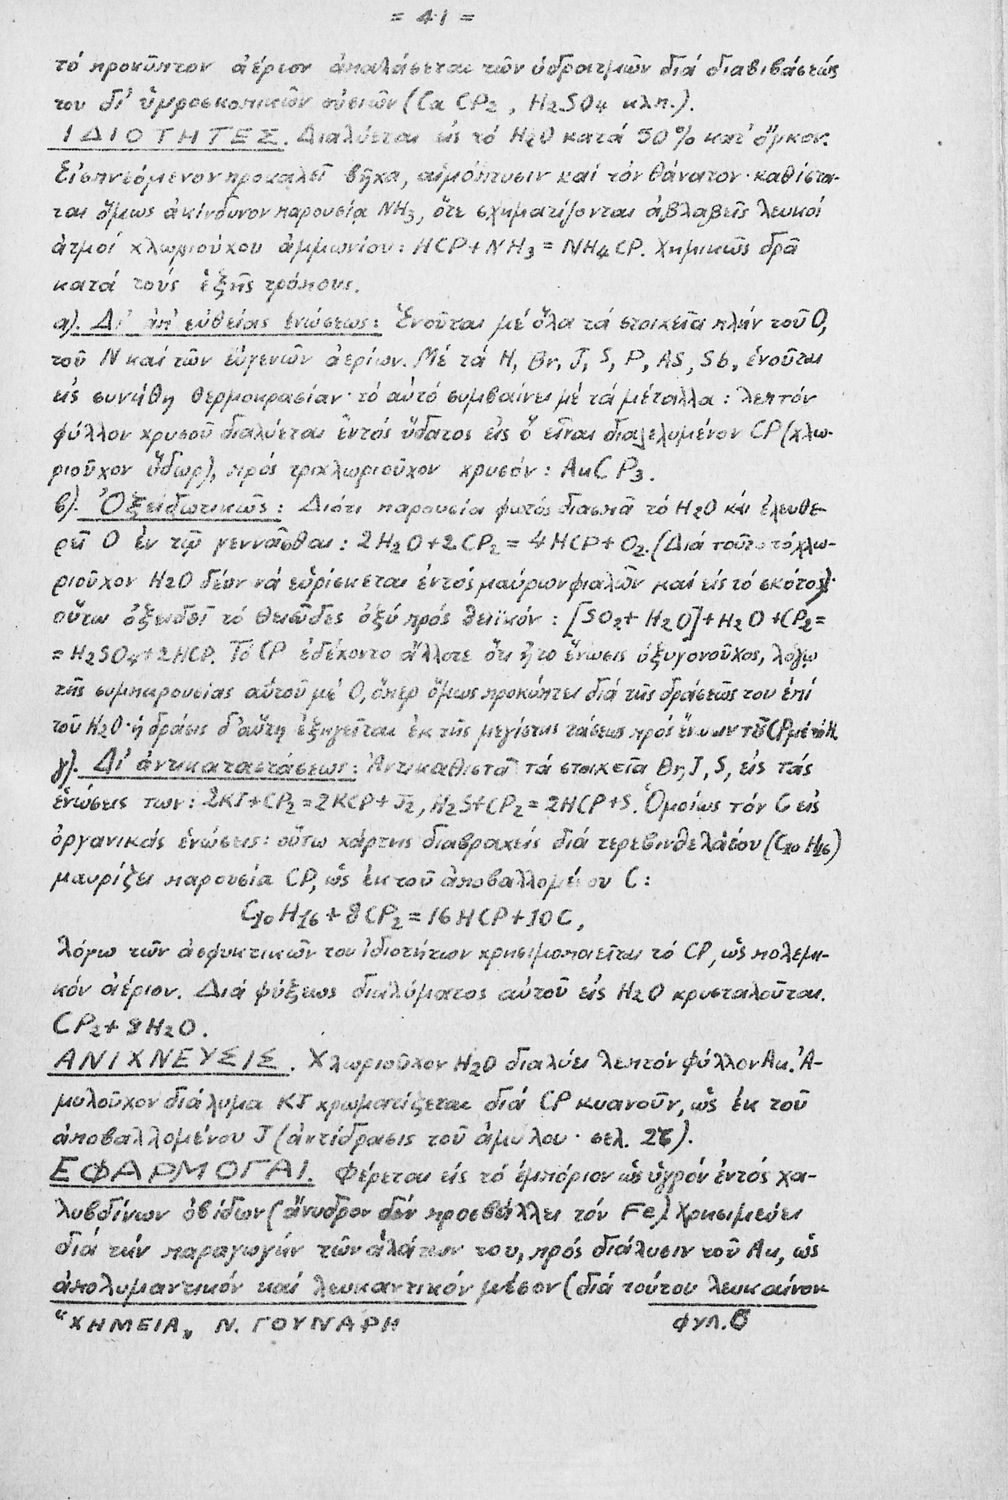 = 41 =
τό προκῦπτον ἀέριον ἀπαλάσεται τῶν ὑδρατμῶν διά διαβιβάσεώς
του δι' ὑγροσκοπικῶν οὐσιῶν (Ca Cl₂, H₂SO₄ κλπ.).
ΙΔΙΟΤΗΤΕΣ. Διαλύεται εἰς τό H₂O κατά 50% κατ' ὄγκον.
Εἰσπνεόμενον προκαλεῖ βῆχα, αἱμόπτυσιν καί τόν θάνατον· καθίστα-
ται ὅμως ἀκίνδυνον παρουσίᾳ NH₃, ὅτε σχηματίζονται ἀβλαβεῖς λευκοί
ἀτμοί χλωριούχου ἀμμωνίου: HCl + NH₃ = NH₄Cl. Χημικῶς δρᾶ
κατά τούς ἑξῆς τρόπους.
α). Δι' ἀπ' εὐθείας ἑνώσεως: Ἑνοῦται μέ ὅλα τά στοιχεῖα πλήν τοῦ O,
τοῦ N καί τῶν εὐγενῶν ἀερίων. Μέ τά H, Br, J, S, P, AS, Sb, ἑνοῦται
εἰς συνήθη θερμοκρασίαν· τό αὐτό συμβαίνει μέ τά μέταλλα: λεπτόν
φύλλον χρυσοῦ διαλύεται ἐντός ὕδατος εἰς ὅ εἶναι διαλελυμένον Cl (χλω-
ριοῦχον ὕδωρ), πρός τριχλωριοῦχον χρυσόν: AuCl₃.
β). Ὀξειδωτικῶς: Διότι παρουσίᾳ φωτός διασπᾶ τό H₂O καί ἐλευθε-
ρεῖ O ἐν τῷ γεννᾶσθαι: 2H₂O + 2Cl₂ = 4HCl + O₂. (Διά τοῦτο τό χλω-
ριοῦχον H₂O δέον νά εὑρίσκεται ἐντός μαύρων φιαλῶν καί εἰς τό σκότος)·
οὕτω ὀξειδοῖ τό θειῶδες ὀξύ πρός θειϊκόν: [SO₂ + H₂O] + H₂O + Cl₂ =
= H₂SO₄ + 2HCl. Τό Cl ἐδέχοντο ἄλλοτε ὅτι ἦτο ἕνωσις ὀξυγονοῦχος, λόγῳ
τῆς συμπεριφορᾶς αὐτοῦ μέ O, ὅπερ ὅμως προκύπτει διά τῆς δράσεώς του ἐπί
τοῦ H₂O· ἡ δράσις δ' αὕτη ἐξηγεῖται ἐκ τῆς μεγίστης τάσεως πρός ἕνωσιν τοῦ Cl μέ τό H.
γ). Δι' ἀντικαταστάσεως: Ἀντικαθιστᾶ τά στοιχεῖα Br, J, S, εἰς τάς
ἑνώσεις των: 2KJ + Cl₂ = 2KCl + J₂, H₂S + Cl₂ = 2HCl + S. Ὁμοίως τόν C εἰς
ὀργανικάς ἑνώσεις: οὕτω χάρτης διαβραχείς διά τερεβινθελαίου (C₁₀H₁₆)
μαυρίζει παρουσίᾳ Cl, ὡς ἐκ τοῦ ἀποβαλλομένου C:
C₁₀H₁₆ + 8Cl₂ = 16HCl + 10C,
λόγω τῶν ἀσφυκτικῶν του ἰδιοτήτων χρησιμοποιεῖται τό Cl, ὡς πολεμι-
κόν ἀέριον. Διά ψύξεως διαλύματος αὐτοῦ εἰς H₂O κρυσταλοῦται.
Cl₂ + 8H₂O.
ΑΝΙΧΝΕΥΣΙΣ. Χλωριοῦχον H₂O διαλύει λεπτόν φύλλον Au. Ἀ-
μυλοῦχον διάλυμα KJ χρωματίζεται διά Cl κυανοῦν, ὡς ἐκ τοῦ
ἀποβαλλομένου J (ἀντίδρασις τοῦ ἀμύλου· σελ. 26).
ΕΦΑΡΜΟΓΑΙ. Φέρεται εἰς τό ἐμπόριον ὡς ὑγρόν ἐντός χα-
λυβδίνων ὀβίδων (ἄνυδρον δέν προσβάλλει τόν Fe). Χρησιμεύει
διά τήν παραγωγήν τῶν ἁλάτων του, πρός διάλυσιν τοῦ Au, ὡς
ἀπολυμαντικόν καί λευκαντικόν μέσον (διά τούτου λευκαίνον-
"ΧΗΜΕΙΑ„ Ν. ΓΟΥΝΑΡΗ ΦΥΛ. 6